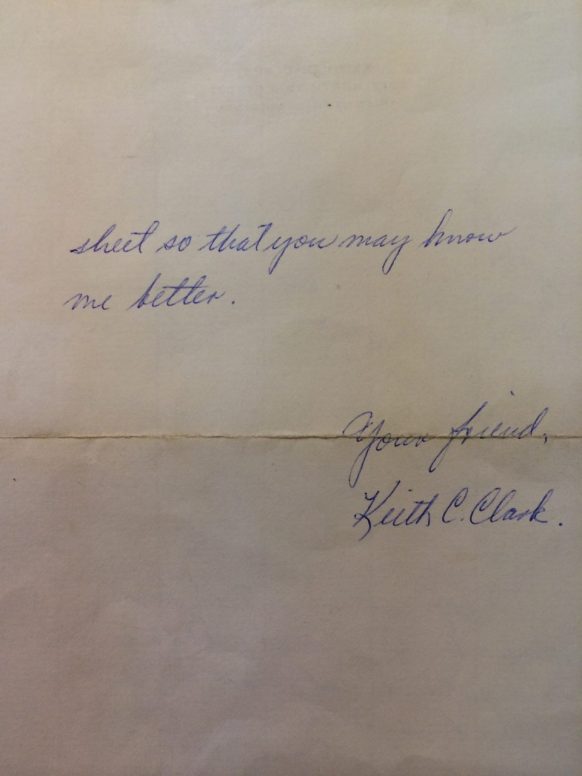 sheet so that you may know
me better.
Your friend,
Keith C. Clark.